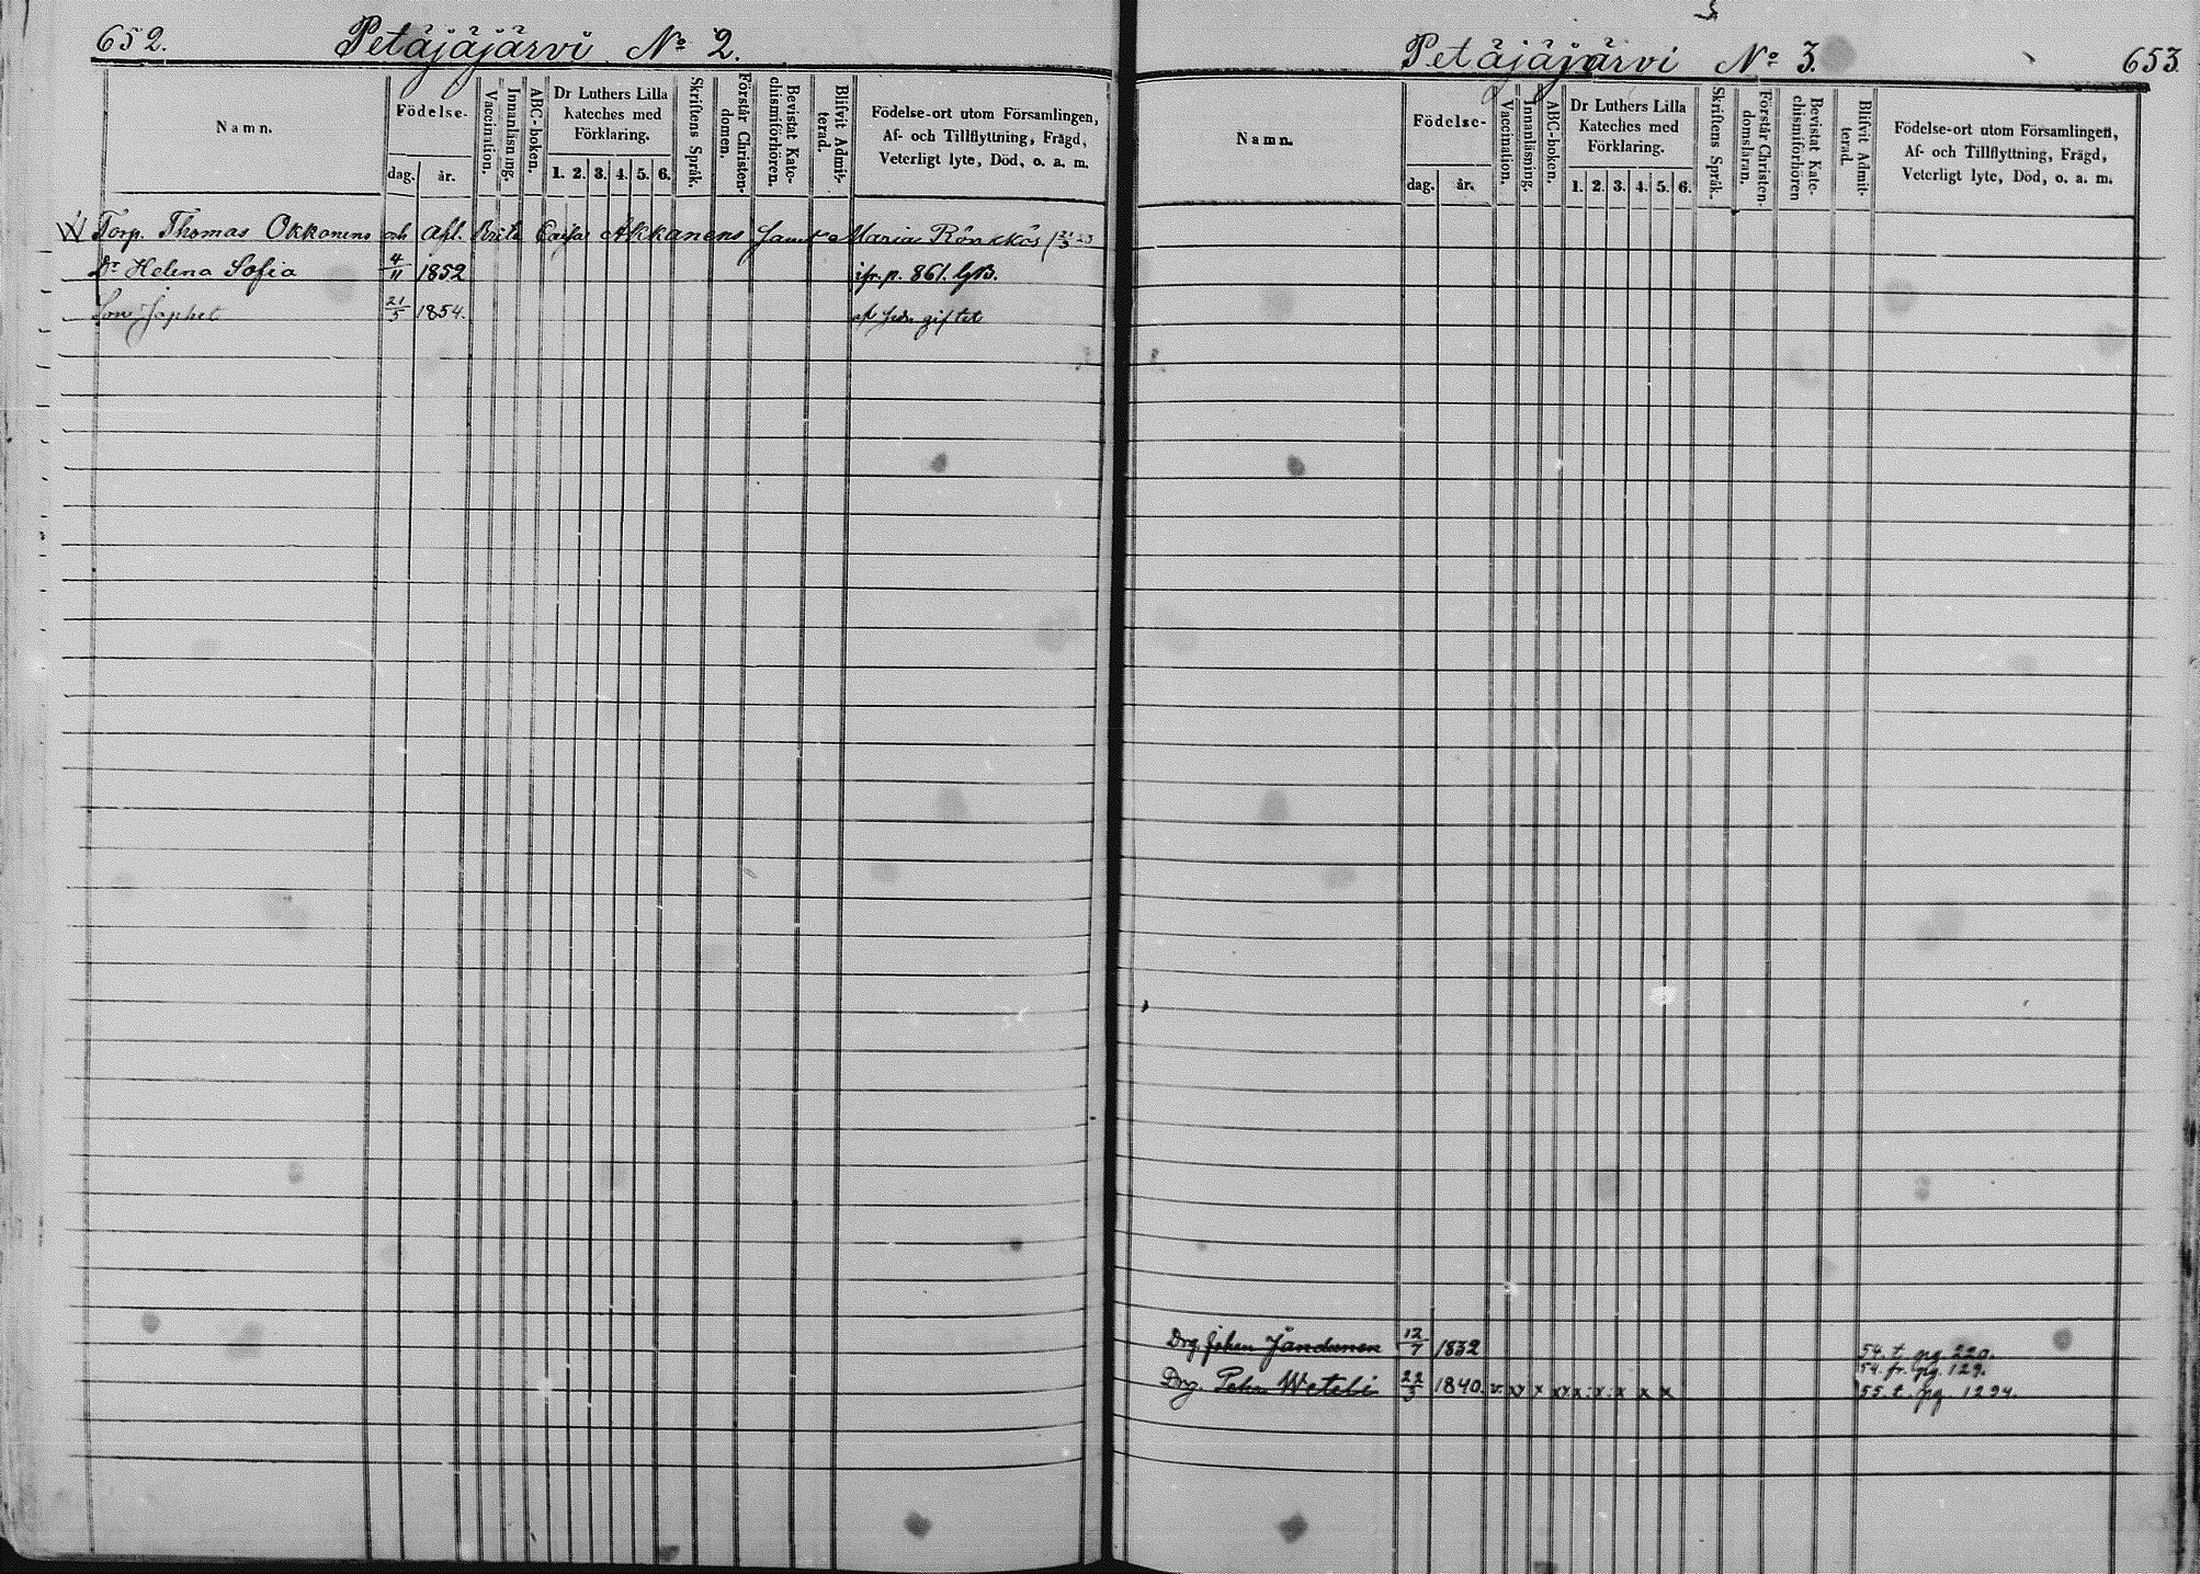 652.
Petäjäjärvi № 2.
Namn.
Födelse-
dag.
år.
Vaccination.
Innanläsning.
ABC-boken.
Dr Luthers Lilla
Kateches med
Förklaring.
1. 2. 3. 4. 5. 6.
Skriftens Språk.
Förstår Christen-
domen.
Bevistat Kate-
chismiförhören.
Blifvit Admit-
terad.
Födelse-ort utom Församlingen,
Af- och Tillflyttning, Frägd,
Veterligt lyte, Död, o. a. m.
Torp. Thomas Okkonens och afl. Brita Caisa Akkanens samt Maria Rönkkös
Dr Helena Sofia 4/11 1852 ifr. p. 861. GB.
Son Japhet 21/5 1854. giftet
Petäjäjärvi № 3.
653
Namn.
Födelse-
dag.
år.
Vaccination.
Innanläsning.
ABC-boken.
Dr Luthers Lilla
Kateches med
Förklaring.
1. 2. 3. 4. 5. 6.
Skriftens Språk.
Förstår Christen-
domsläran.
Bevistat Kate-
chismiförhören
Blifvit Admit-
terad.
Födelse-ort utom Församlingen,
Af- och Tillflyttning, Frägd,
Veterligt lyte, Död, o. a. m.
Drg. Johan 12/7 1832 54. t. pg. 220.
54. fr. pg. 129.
Drg. Pehr 22/3 1840. v. xy x xyx. x. x x x 55. t. pg. 1294.